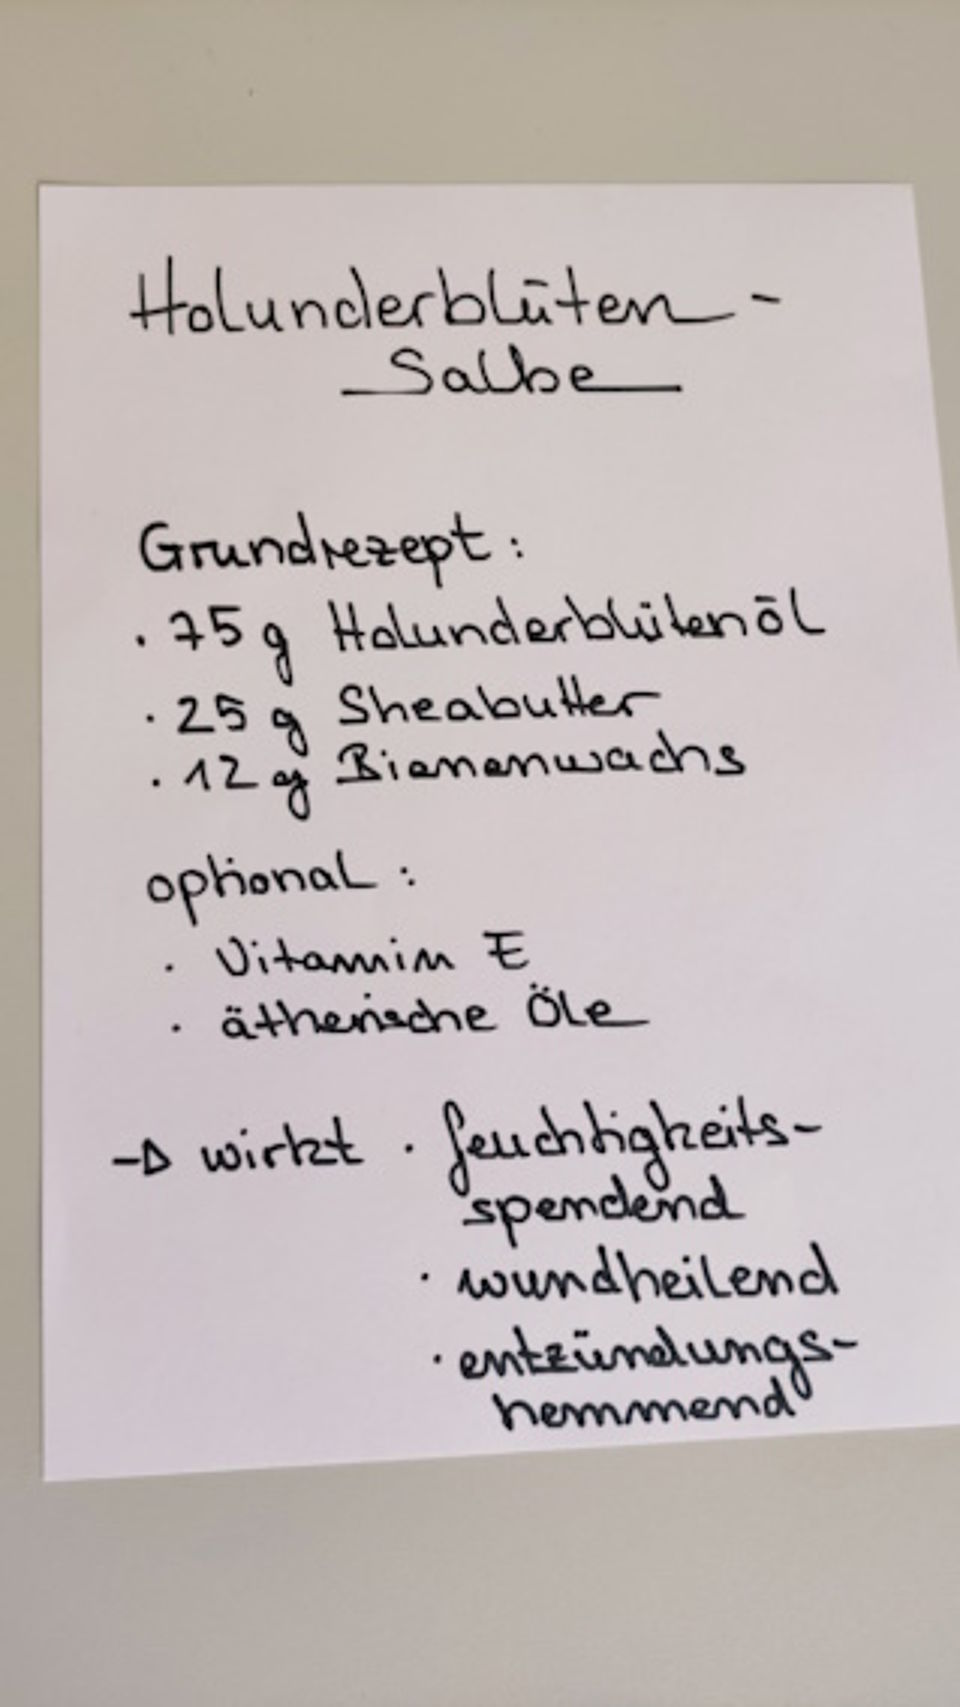 Holunderblüten-
Salbe
Grundrezept:
· 75 g Holunderblütenöl
· 25 g Sheabutter
· 12 g Bienenwachs
optional:
· Vitamin E
· ätherische Öle
→ wirkt · feuchtigkeits-
spendend
· wundheilend
· entzündungs-
hemmend